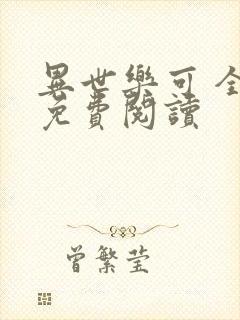 異世樂可全
免費閱讀
曾繁莹